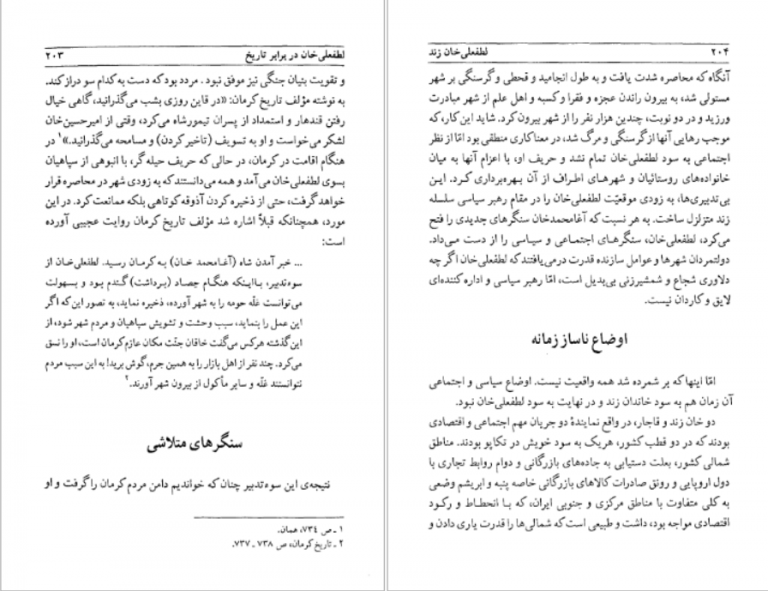 لطفعلی‌خان در برابر تاریخ ۲۰۳
و تقویت بنیان جنگی نیز موفق نبود. مردد بود که دست به کدام سو دراز کند.
به نوشته مؤلف تاریخ کرمان: «در قاین روزی بشب می‌گذرانید، گاهی خیال
رفتن قندهار و استمداد از پسران تیمورشاه می‌کرد، وقتی از امیرحسین‌خان
لشکر می‌خواست و او به تسویف (تاخیر کردن) و مسامحه می‌گذرانید.»۱ در
هنگام اقامت در کرمان، در حالی که حریف حیله‌گر، با انبوهی از سپاهیان
بسوی لطفعلی‌خان می‌آمد و همه می‌دانستند که به زودی شهر در محاصره قرار
خواهد گرفت، حتی از ذخیره کردن آذوقه کوتاهی بلکه ممانعت کرد. در این
مورد، همچنانکه قبلاً اشاره شد مؤلف تاریخ کرمان روایت عجیبی آورده
است:
... خبر آمدن شاه (آغامحمد خان) به کرمان رسید. لطفعلی‌خان از
سوءتدبیر، با اینکه هنگام جصاد (برداشت) گندم بود و بسهولت
می‌توانست غلّه حومه را به شهر آورده، ذخیره نماید، به تصور این که اگر
این عمل را بنماید، سبب وحشت و تشویش سپاهیان و مردم شهر شود، از
این گذشته هرکس می‌گفت خاقان جنّت مکان عازم کرمان است، او را نسق
می‌کرد. چند نفر از اهل بازار را به همین جرم، گوش برید! به این سبب مردم
نتوانستند غلّه و سایر مأکول از بیرون شهر آورند.۲
سنگرهای متلاشی
نتیجه‌ی این سوءتدبیر چنان که خواندیم دامن مردم کرمان را گرفت و او
۱ ـ ص ۷۳۴، همان.
۲ ـ تاریخ کرمان، ص ۷۳۸ ـ ۷۳۷.
۲۰۴ لطفعلی‌خان زند
آنگاه که محاصره شدت یافت و به طول انجامید و قحطی و گرسنگی بر شهر
مستولی شد، به بیرون راندن عجزه و فقرا و کسبه و اهل علم از شهر مبادرت
ورزید و در دو نوبت، چندین هزار نفر را از شهر بیرون کرد. شاید این کار، که
موجب رهایی آنها از گرسنگی و مرگ شد، در معنا کاری منطقی بود امّا از نظر
اجتماعی به سود لطفعلی‌خان تمام نشد و حریف او، با اعزام آنها به میان
خانواده‌های روستائیان و شهرهای اطراف از آن بهره‌برداری کرد. این
بی‌تدبیری‌ها، به زودی موقعیّت لطفعلی‌خان را در مقام رهبر سیاسی سلسله
زند متزلزل ساخت. به هر نسبت که آغامحمدخان سنگرهای جدیدی را فتح
می‌کرد، لطفعلی‌خان، سنگرهای اجتماعی و سیاسی را از دست می‌داد.
دولتمردان شهرها و عوامل سازنده قدرت درمی‌یافتند که لطفعلی‌خان اگر چه
دلاوری شجاع و شمشیرزنی بی‌بدیل است، امّا رهبر سیاسی و اداره کننده‌ای
لایق و کاردان نیست.
اوضاع ناساز زمانه
امّا اینها که بر شمرده شد همه واقعیت نیست. اوضاع سیاسی و اجتماعی
آن زمان هم به سود خاندان زند و در نهایت به سود لطفعلی‌خان نبود.
دو خان زند و قاجار، در واقع نمایندهٔ دو جریان مهم اجتماعی و اقتصادی
بودند که در دو قطب کشور، هریک به سود خویش در تکاپو بودند. مناطق
شمالی کشور، بعلت دستیابی به جاده‌های بازرگانی و دوام روابط تجاری با
دول اروپایی و رونق صادرات کالاهای بازرگانی خاصه پنبه و ابریشم وضعی
به کلی متفاوت با مناطق مرکزی و جنوبی ایران، که با انحطاط و رکود
اقتصادی مواجه بود، داشت و طبیعی است که شمالی‌ها را قدرت یاری دادن و